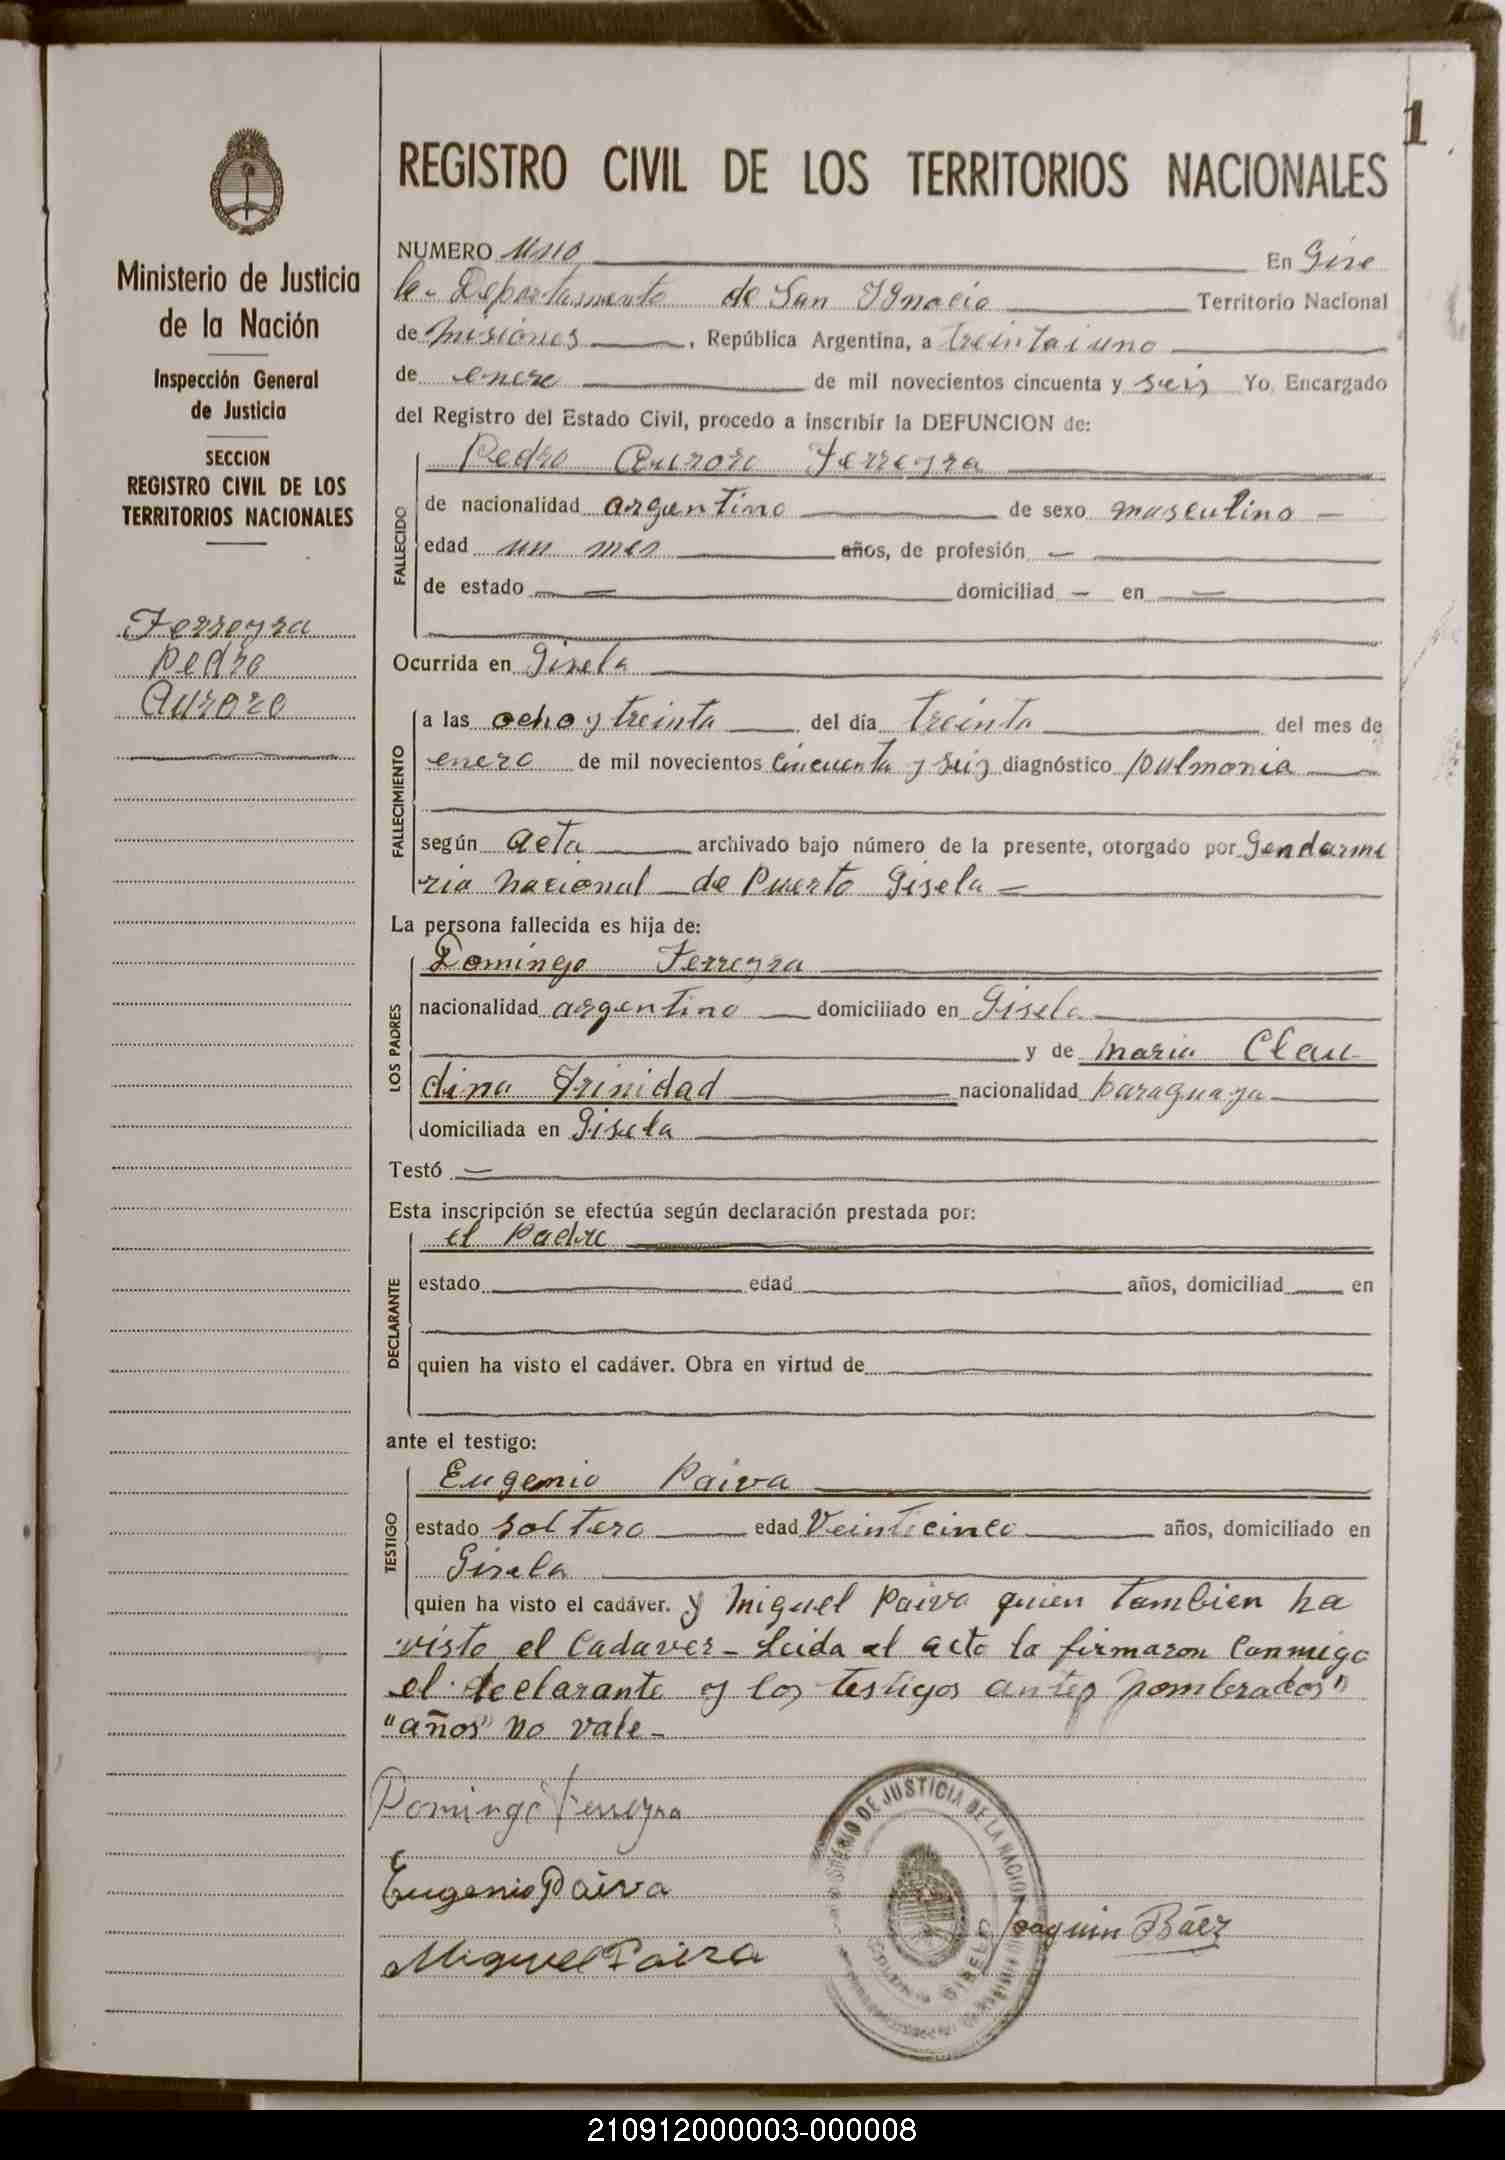 1
REGISTRO CIVIL DE LOS TERRITORIOS NACIONALES
Ministerio de Justicia
de la Nación
Inspección General
de Justicia
SECCION
REGISTRO CIVIL DE LOS
TERRITORIOS NACIONALES
Ferreyra
Pedro
Aurora
NUMERO uno En Gise
la - Departamento de San Ignacio Territorio Nacional
de Misiones, República Argentina, a treintaiuno
de enero de mil novecientos cincuenta y seis Yo, Encargado
del Registro del Estado Civil, procedo a inscribir la DEFUNCION de:
Pedro Aurora Ferreyra
FALLECIDO
de nacionalidad argentino de sexo masculino -
edad un mes años, de profesión -
de estado - domiciliad - en -
Ocurrida en Gisela
FALLECIMIENTO
a las ocho y treinta del día treinta del mes de
enero de mil novecientos cincuenta y seis diagnóstico pulmonia
según acta archivado bajo número de la presente, otorgado por Gendarme
ria nacional de Puerto Gisela -
La persona fallecida es hija de:
LOS PADRES
Domingo Ferreyra
nacionalidad argentino domiciliado en Gisela
y de Maria Clau
dina Trinidad nacionalidad paraguaya
domiciliada en Gisela
Testó -
Esta inscripción se efectúa según declaración prestada por:
DECLARANTE
el Padre
estado edad años, domiciliad en
quien ha visto el cadáver. Obra en virtud de
ante el testigo:
TESTIGO
Eugenio Paiva
estado soltero edad Veinticinco años, domiciliado en
Gisela
quien ha visto el cadáver. y Miguel Paiva quien tambien ha
visto el Cadaver - Leida el acta la firmaron conmigo
el declarante y los testigos antes nombrados"
"años" no vale -
Domingo Ferreyra
Eugenio Paiva
Miguel Paiva
Joaquin Báez
MINISTERIO DE JUSTICIA DE LA NACION
GISELA
210912000003-000008